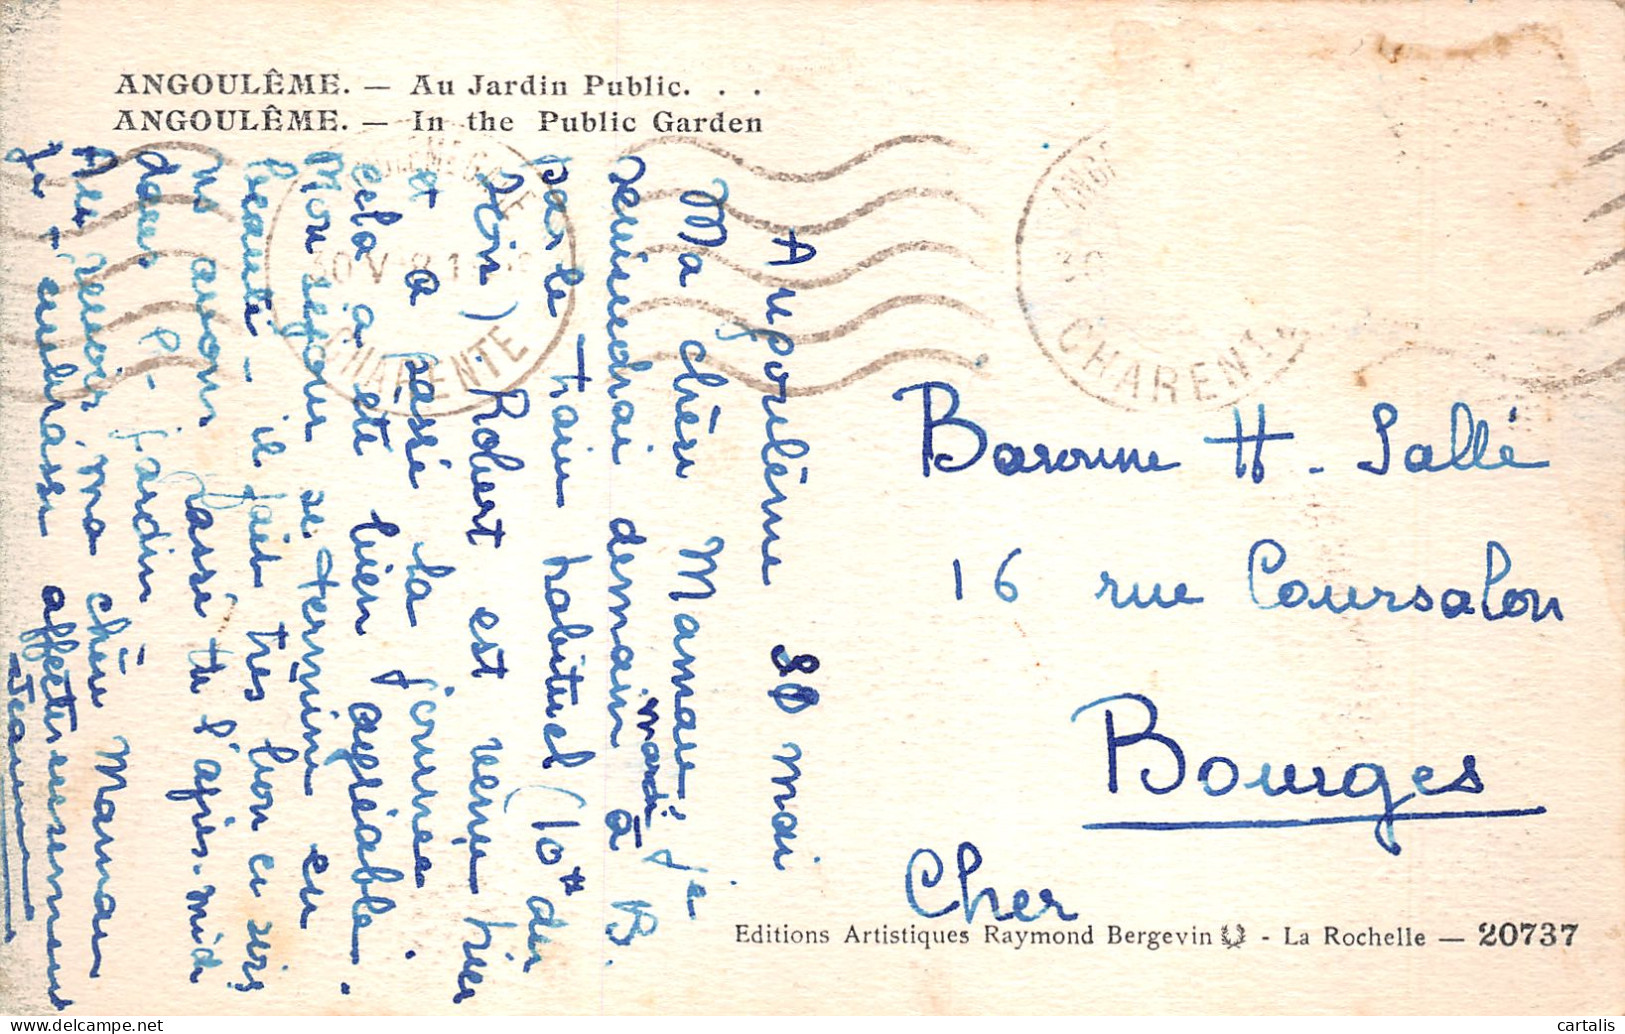 ANGOULÊME. — Au Jardin Public. . .
ANGOULÊME. — In the Public Garden
Angoulême 30 mai
Ma chère Maman je
reviendrai demain mardi à B.
par le train habituel (10H du
soir) Robert est venu hier
et a passé la journée.
cela a été bien agréable.
Mon séjour se termine en
beauté - il fait très bon ce soir
ns avons passé l'après-midi
dans jardin
revoir ma chère Maman
Je t'embrasse affectueusement
Jeanne
Baronne H. Sallé
16 rue Coursalon
Bourges
Cher
CHARENTE
ANG
30
CHARENTE
Editions Artistiques Raymond Bergevin - La Rochelle — 20737
cartalis